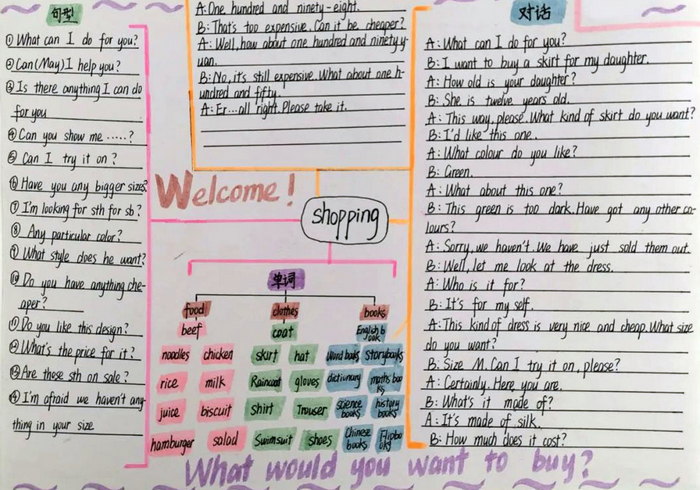 句型
①What can I do for you?
②Can(May)I help you?
③Is there anything I can do
for you
④Can you show me ......?
⑤Can I try it on?
⑥Have you any bigger sizes?
⑦I'm looking for sth for sb?
⑧Any particular color?
⑨What style does he want?
⑩Do you have anything che-
aper?
⑪Do you like this design?
⑫What's the price for it?
⑬Are those sth on sale?
⑭I'm afraid we haven't any-
thing in your size
A:One hundred and ninety-eight.
B:That's too expensive. Can it be cheaper?
A:Well, how about one hundred and ninety y-
uan.
B:No, it's still expensive. What about one h-
undred and fifty.
A:Er...all right. Please take it.
Welcome!
shopping
单词
food clothes books
beef coat English b
ook
noodles chicken skirt hat Word books Storybooks
rice milk Raincoat gloves dictionary maths boo
ks
juice biscuit shirt Trouser science
books history
books
hamburger salad Swimsuit shoes Chinese
books
对话
A:What can I do for you?
B:I want to buy a skirt for my daughter.
A:How old is your daughter?
B:She is twelve years old.
A:This way, please. What kind of skirt do you want?
B:I'd like this one.
A:What colour do you like?
B:Green.
A:What about this one?
B:This green is too dark. Have got any other co-
lours?
A:Sorry, we haven't. We have just sold them out.
B:Well, let me look at the dress.
A:Who is it for?
B:It's for my self.
A:This kind of dress is very nice and cheap. What size
do you want?
B:Size M. Can I try it on, please?
A:Certainly. Here you are.
B:What's it made of?
A:It's made of silk.
B:How much does it cost?
What would you want to buy?